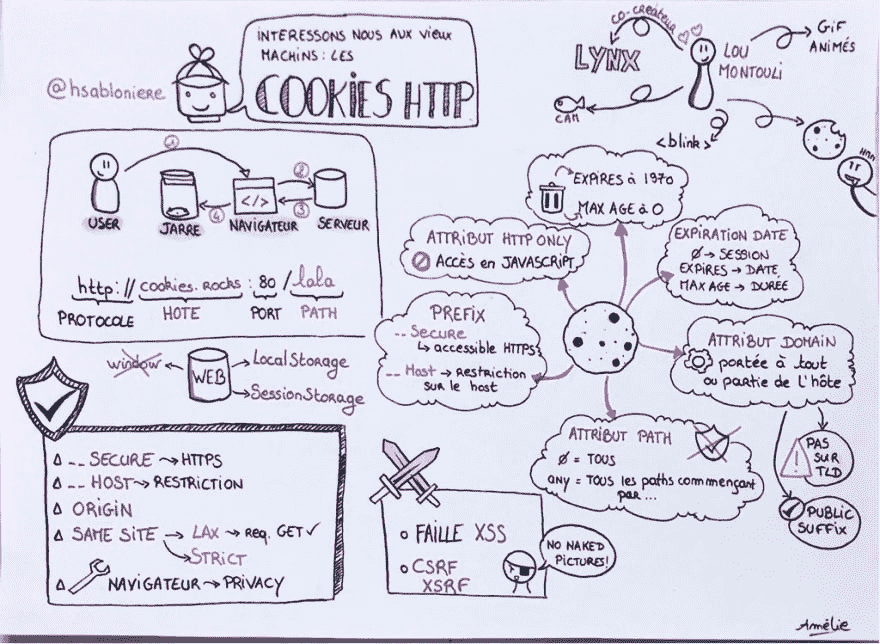 INTERESSONS NOUS AUX VIEUX
MACHINS : LES
COOKIES HTTP
@hsabloniere
CO-CRÉATEUR
LYNX
LOU
MONTOULI
GIF
ANIMÉS
CAM
<blink>
HMM
1
2
3
4
</>
USER
JARRE
NAVIGATEUR
SERVEUR
http://cookies.rocks:80/lala
PROTOCOLE
HOTE
PORT
PATH
window
WEB
LocalStorage
SessionStorage
EXPIRES à 1970
MAX AGE à 0
ATTRIBUT HTTP ONLY
ACCÈS en JAVASCRIPT
EXPIRATION DATE
Ø → SESSION
EXPIRES → DATE
MAX AGE → DUREE
PREFIX
__ SECURE
↳ accessible HTTPS
__ HOST → RESTRICTION
SUR le host
ATTRIBUT DOMAIN
portée à tout
ou partie de l'hôte
ATTRIBUT PATH
Ø = TOUS
any = TOUS les paths commençant
par ...
PAS
SUR
TLD
PUBLIC
SUFFIX
__ SECURE → HTTPS
__ HOST → RESTRICTION
ORIGIN
SAME SITE → LAX → Req. GET ✓
STRICT
NAVIGATEUR → PRIVACY
FAILLE XSS
CSRF
XSRF
NO NAKED
PICTURES!
Amélie